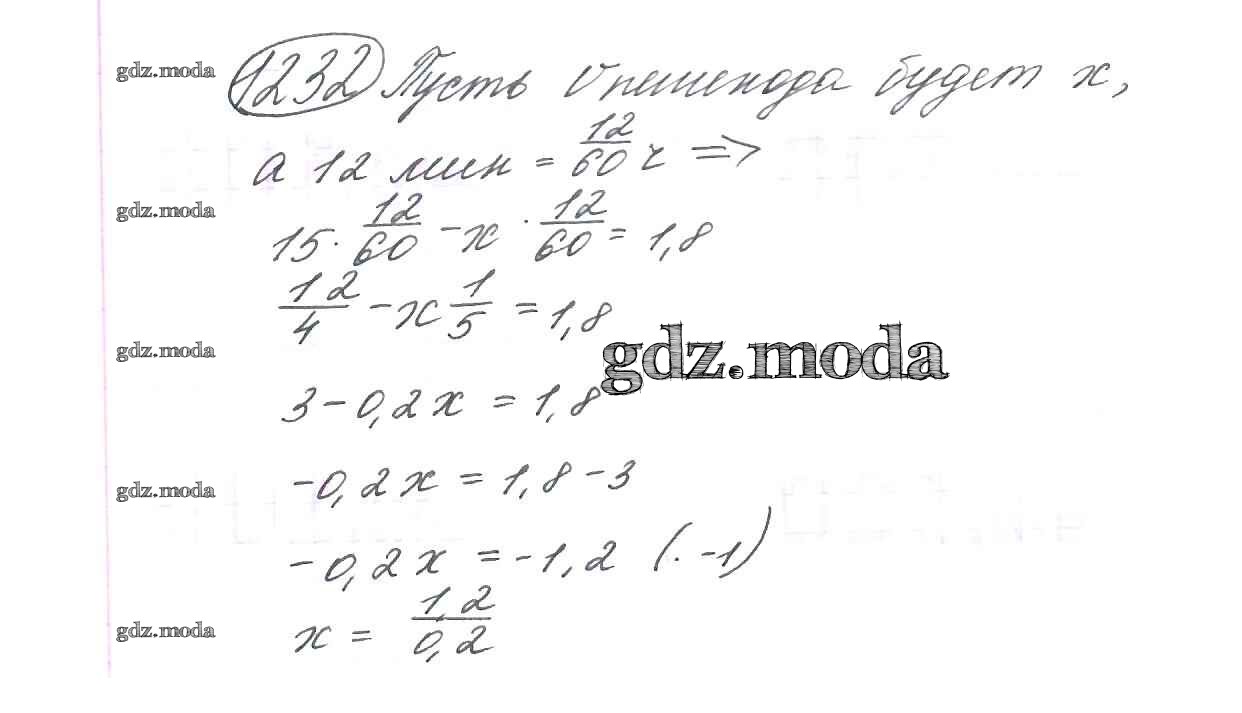 gdz.moda
1232 Пусть V пешехода будет x,
а 12 мин = 12/60 ч =>
gdz.moda
15 · 12/60 - x · 12/60 = 1,8
12/4 - x 1/5 = 1,8
gdz.moda
gdz.moda
3 - 0,2x = 1,8
-0,2x = 1,8 - 3
gdz.moda
-0,2x = -1,2 (· -1)
x = 1,2/0,2
gdz.moda